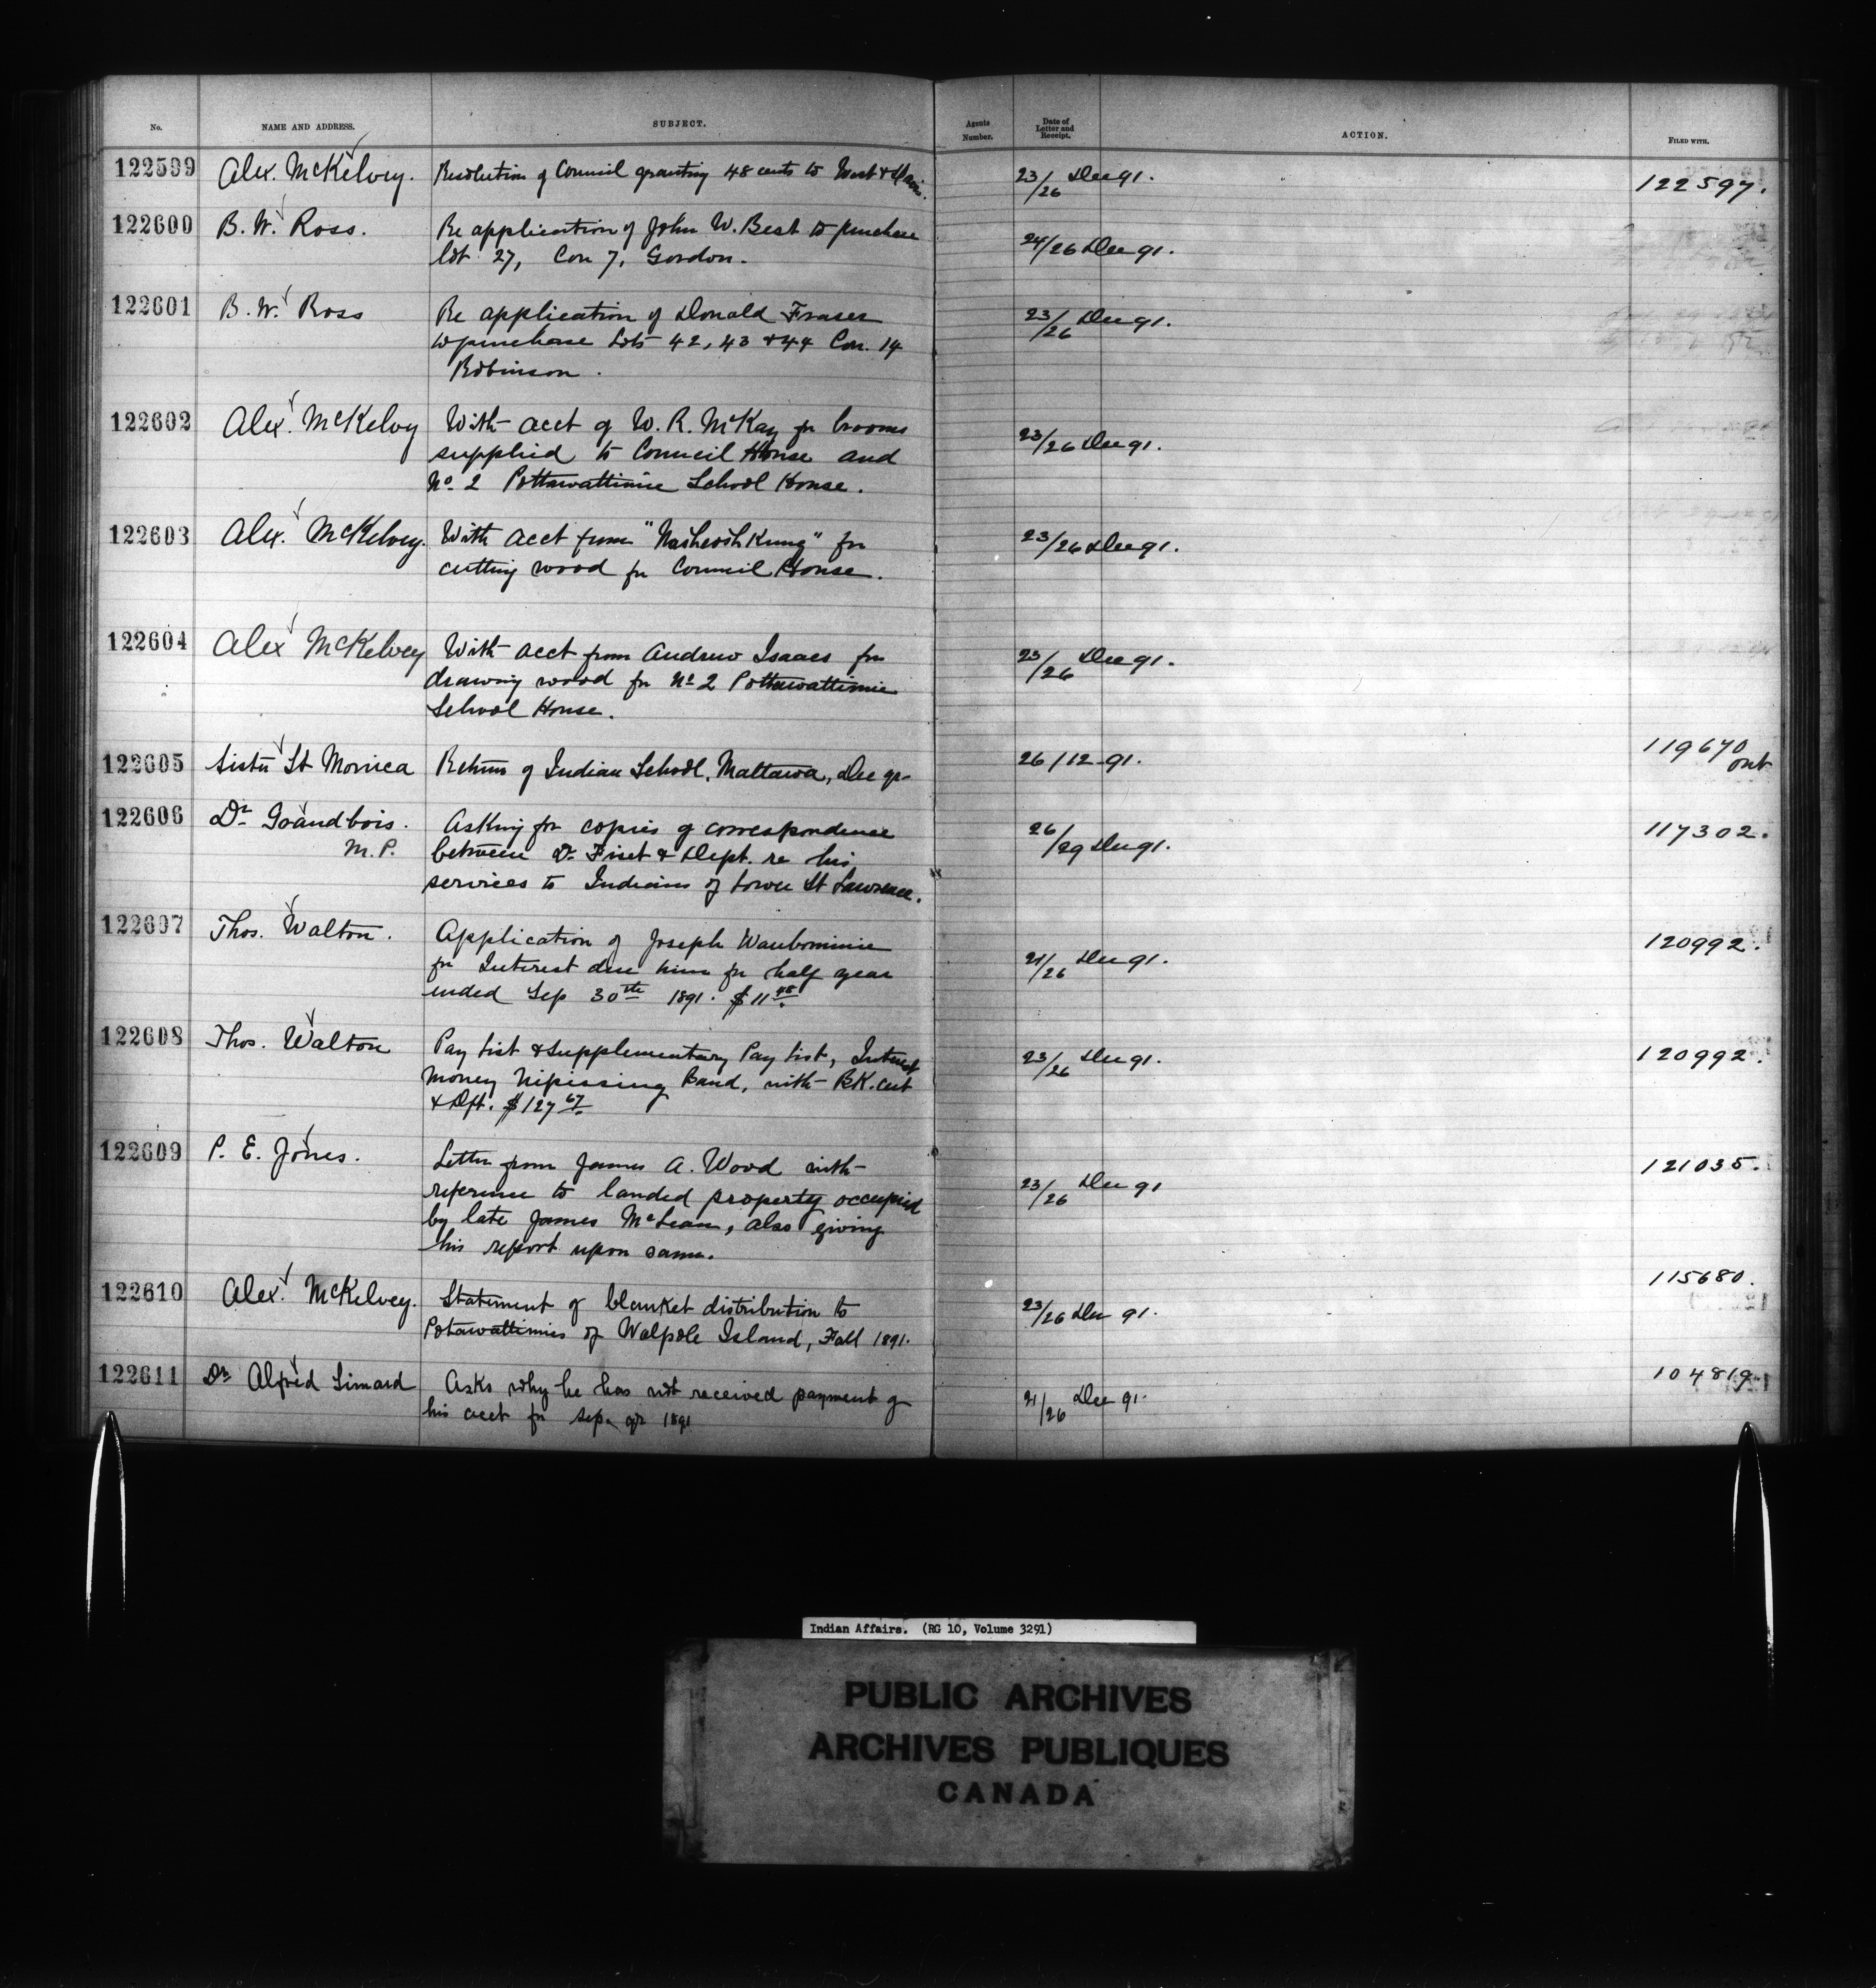 No. NAME AND ADDRESS. SUBJECT. Agents Number. Date of Letter and Receipt. ACTION. FILED WITH.
122599 Alex. McKelvey. Resolution of Council granting 48 cents to West & 23/26 Dec 91. 122597.
122600 B. W. Ross. Re application of John W. Best to purchase 24/26 Dec 91.
lot 27, Con 7, Gordon.
122601 B. W. Ross Re application of Donald Fraser 23/26 Dec 91.
to purchase Lots 42, 43 & 44 Con. 14
Robinson.
122602 Alex. McKelvey With acct of W. R. McKay for brooms 23/26 Dec 91.
supplied to Council House and
No. 2 Pottawattimie School House.
122603 Alex. McKelvey. With acct from "Nasheoshkung" for 23/26 Dec 91.
cutting wood for Council House.
122604 Alex McKelvey With acct from Andrew Isaacs for 23/26 Dec 91.
drawing wood for No 2 Pottawattimie
School House.
122605 Sister St Monica Return of Indian School, Mattawa, Dec qr 26/12-91. 119670 ont
122606 Dr. Grandbois. Asking for copies of correspondence 26/29 Dec 91. 117302.
M.P. between Dr. Fiset & Dept. re his
services to Indians of Lower St Lawrence.
122607 Thos. Walton. Application of Joseph Waubominie 21/26 Dec 91. 120992.
for Interest due him for half year
ended Sep 30th 1891. $11 48
122608 Thos. Walton Pay list & Supplementary Pay list, Interest 23/26 Dec 91. 120992.
Money Nipissing Band, with BK. cert
& Dft. $127 67
122609 P. E. Jones. Letter from James A. Wood with 23/26 Dec 91 121035.
reference to landed property occupied
by late James McLean, also giving
his report upon same.
122610 Alex. McKelvey. Statement of blanket distribution to 23/26 Dec 91. 115680.
Potawattimies of Walpole Island, Fall 1891.
122611 Dr Alfred Simard Asks why he has not received payment of 21/26 Dec 91. 104819.
his acct for Sep. qr 1891
Indian Affairs. (RG 10, Volume 3291)
PUBLIC ARCHIVES
ARCHIVES PUBLIQUES
CANADA